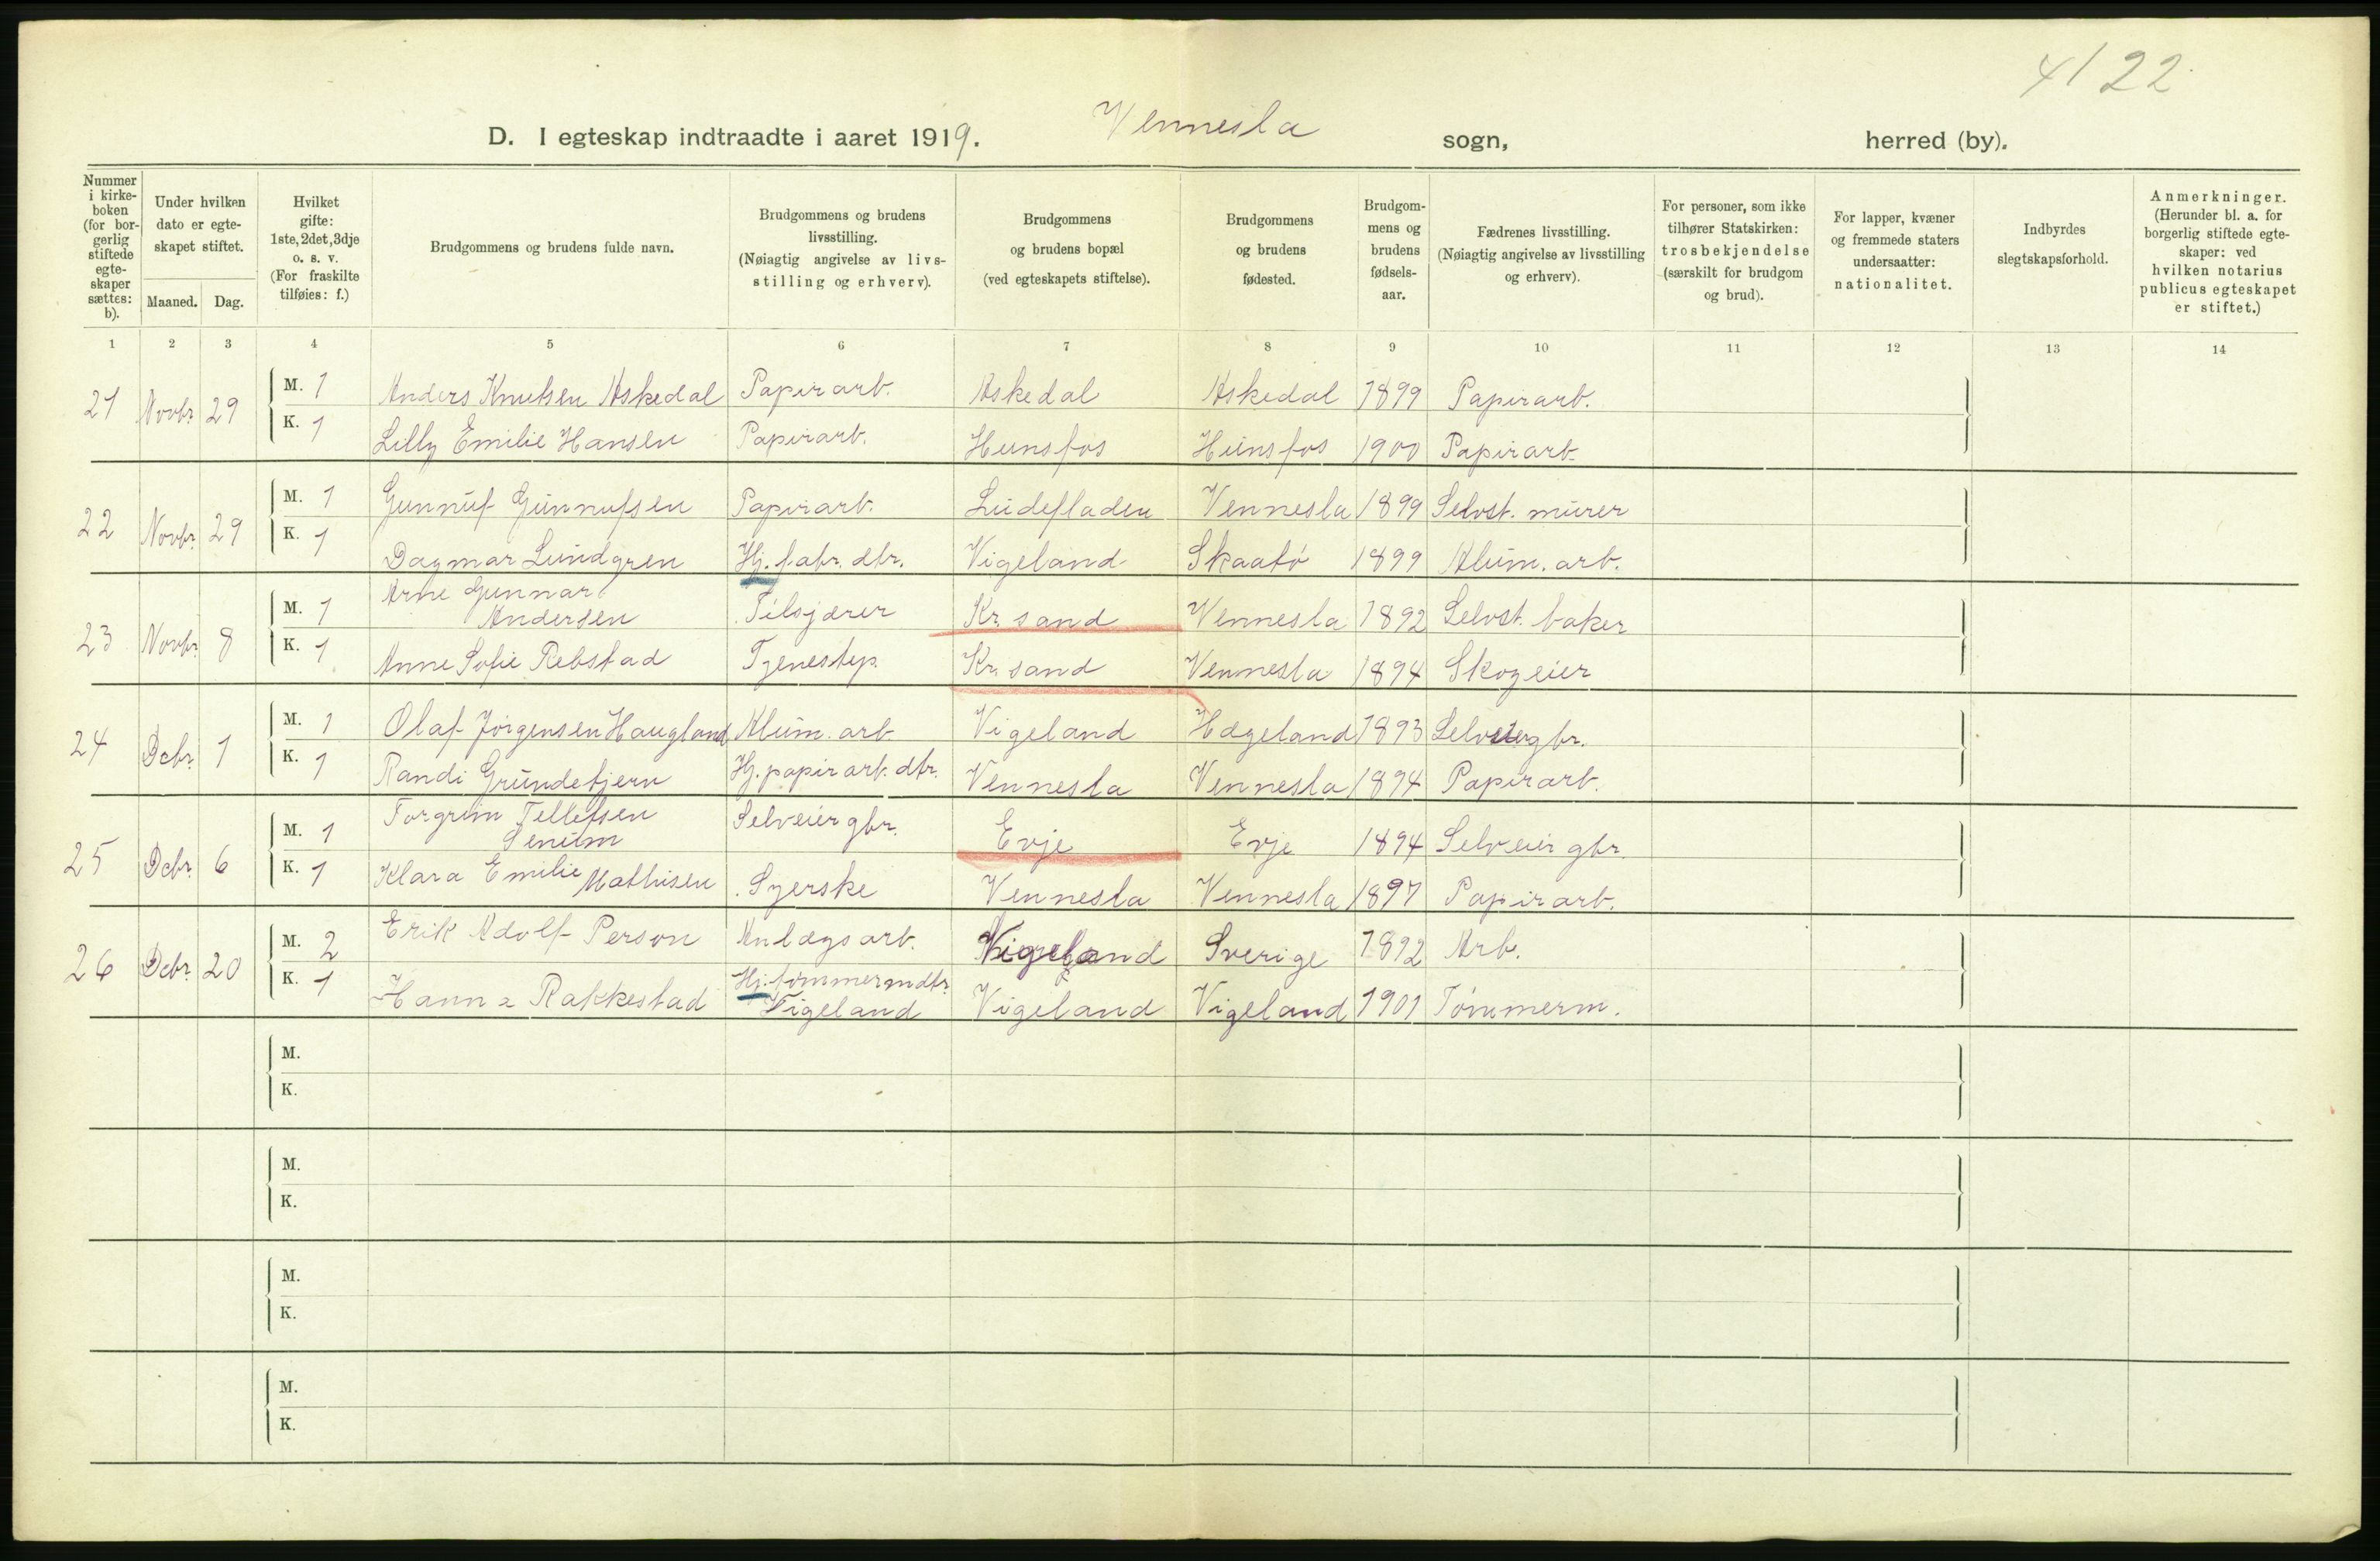 4/22
D. I egteskap indtraadte i aaret 1919. Vennesla sogn, herred (by).
Nummer i kirke-boken (for bor-gerlig stiftede egte-skaper sættes: b).
Under hvilken dato er egte-skapet stiftet.
Maaned. Dag.
Hvilket gifte: 1ste, 2det, 3dje o. s. v. (For fraskilte tilføies: f.)
Brudgommens og brudens fulde navn.
Brudgommens og brudens livsstilling. (Nøiagtig angivelse av livs-stilling og erhverv).
Brudgommens og brudens bopæl (ved egteskapets stiftelse).
Brudgommens og brudens fødested.
Brudgom-mens og brudens fødsels-aar.
Fædrenes livsstilling. (Nøiagtig angivelse av livsstilling og erhverv).
For personer, som ikke tilhører Statskirken: trosbekjendelse (særskilt for brudgom og brud).
For lapper, kvæner og fremmede staters undersaatter: nationalitet.
Indbyrdes slegtskapsforhold.
Anmerkninger. (Herunder bl. a. for borgerlig stiftede egte-skaper: ved hvilken notarius publicus egteskapet er stiftet.)
1 2 3 4 5 6 7 8 9 10 11 12 13 14
21 Novbr. 29 M. 1 Anders Knutsen Askedal Papirarb. Askedal Askedal 1899 Papirarb.
K. 1 Lilly Emilie Hansen Papirarb. Hunsfos Hunsfos 1900 Papirarb.
22 Novbr. 29 M. 1 Gunnuf Gunnufsen Papirarb. Lindefladen Vennesla 1899 Selvst. murer
K. 1 Dagmar Lundgren Hj. fabr. dtr. Vigeland Skaatø 1899 Alum. arb.
23 Novbr. 8 M. 1 Arne Gunnar Andersen Filsjærer Kr. sand Vennesla 1892 Selvst. baker
K. 1 Anne Sofie Rebstad Tjenestep. Kr. sand Vennesla 1894 Skogeier
24 Dcbr. 1 M. 1 Olaf Jørgensen Haugland Alum. arb Vigeland Hægeland 1893 Selveiergbr.
K. 1 Randi Grundetjern Hj. papirarb. dtr. Vennesla Vennesla 1894 Papirarb.
25 Dcbr. 6 M. 1 Torgrim Tellefsen Senum Selveiergbr. Evje Evje 1894 Selveier gbr.
K. 1 Klara Emilie Mathisen Syerske Vennesla Vennesla 1897 Papirarb.
26 Dcbr. 20 M. 2 Erik Adolf Person Anlægsarb. Vigeland Sverige 1892 Arb.
K. 1 Hanna Rakkestad Hj. tømmermdtr. Vigeland Vigeland Vigeland 1901 Tømmerm.
M.
K.
M.
K.
M.
K.
M.
K.